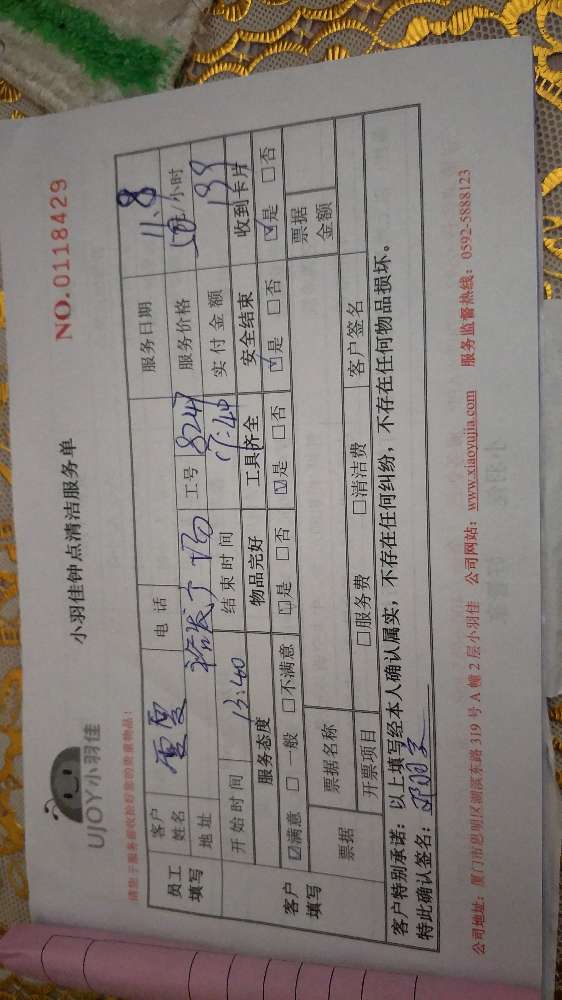 UJOY小羽佳
小羽佳钟点清洁服务单
NO.0118429
请您于服务前收拾好您的贵重物品：
员工填写 客户姓名 电话 服务日期 11.8
地址 广场 工号 8247 服务价格 元/小时
开始时间 13:40 结束时间 17:40 实付金额 199
客户填写 服务态度 物品完好 工具齐全 安全结束 收到卡片
☑满意 □一般 □不满意 ☑是 □否 ☑是 □否 ☑是 □否 ☑是 □否
票据 票据名称 票据金额
开票项目 □服务费 □清洁费 客户签名
客户特别承诺：以上填写经本人确认属实，不存在任何纠纷，不存在任何物品损坏。
特此确认签名：
公司地址：厦门市思明区湖滨东路319号A幢2层小羽佳 公司网站：www.xiaoyujia.com 服务监督热线：0592-5888123